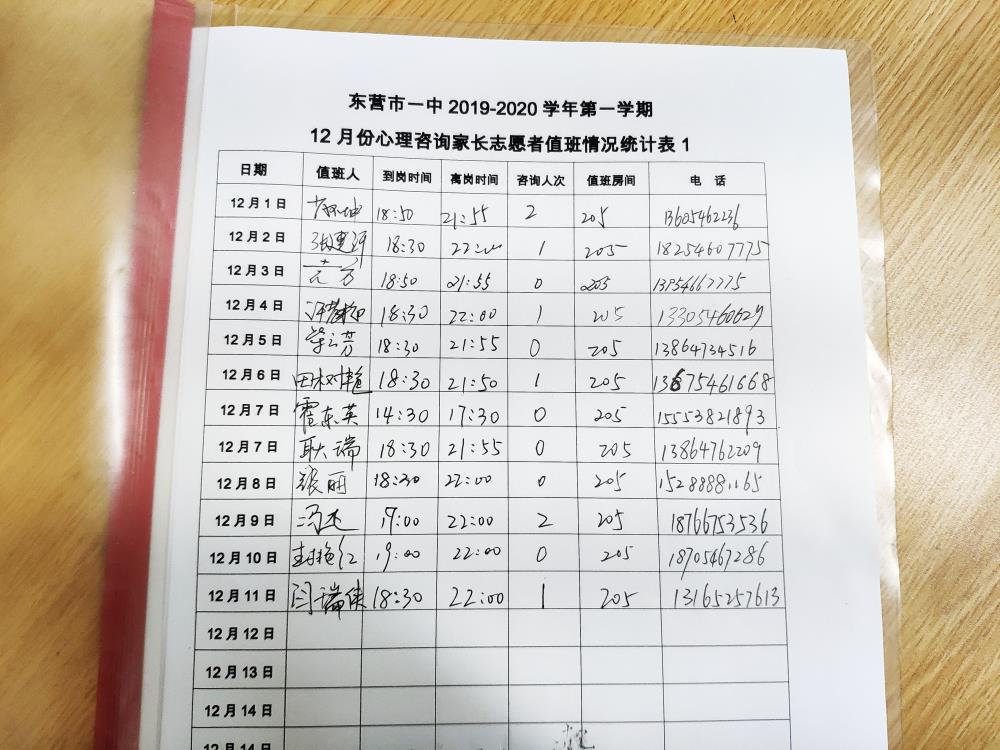 东营市一中 2019-2020 学年第一学期
12 月份心理咨询家长志愿者值班情况统计表 1
日期 值班人 到岗时间 离岗时间 咨询人次 值班房间 电 话
12 月 1 日 18:50 21:55 2 205 13605462236
12 月 2 日 18:30 1 205 18254607775
12 月 3 日 18:50 21:55 0 205
12 月 4 日 18:30 22:00 1 205 13305460629
12 月 5 日 荣云芳 18:30 21:55 0 205 13864734516
12 月 6 日 田树艳 18:30 21:50 1 205 13675461668
12 月 7 日 霍东英 14:30 17:30 0 205 15553821893
12 月 7 日 耿瑞 18:30 21:55 0 205 13864762209
12 月 8 日 张丽 18:30 22:00 0 205 15288881165
12 月 9 日 冯杰 19:00 22:00 2 205 18766753536
12 月 10 日 封艳红 19:00 22:00 0 205 18705467286
12 月 11 日 闫瑞侠 18:30 22:00 1 205 13165257613
12 月 12 日
12 月 13 日
12 月 14 日
12 月 14 日